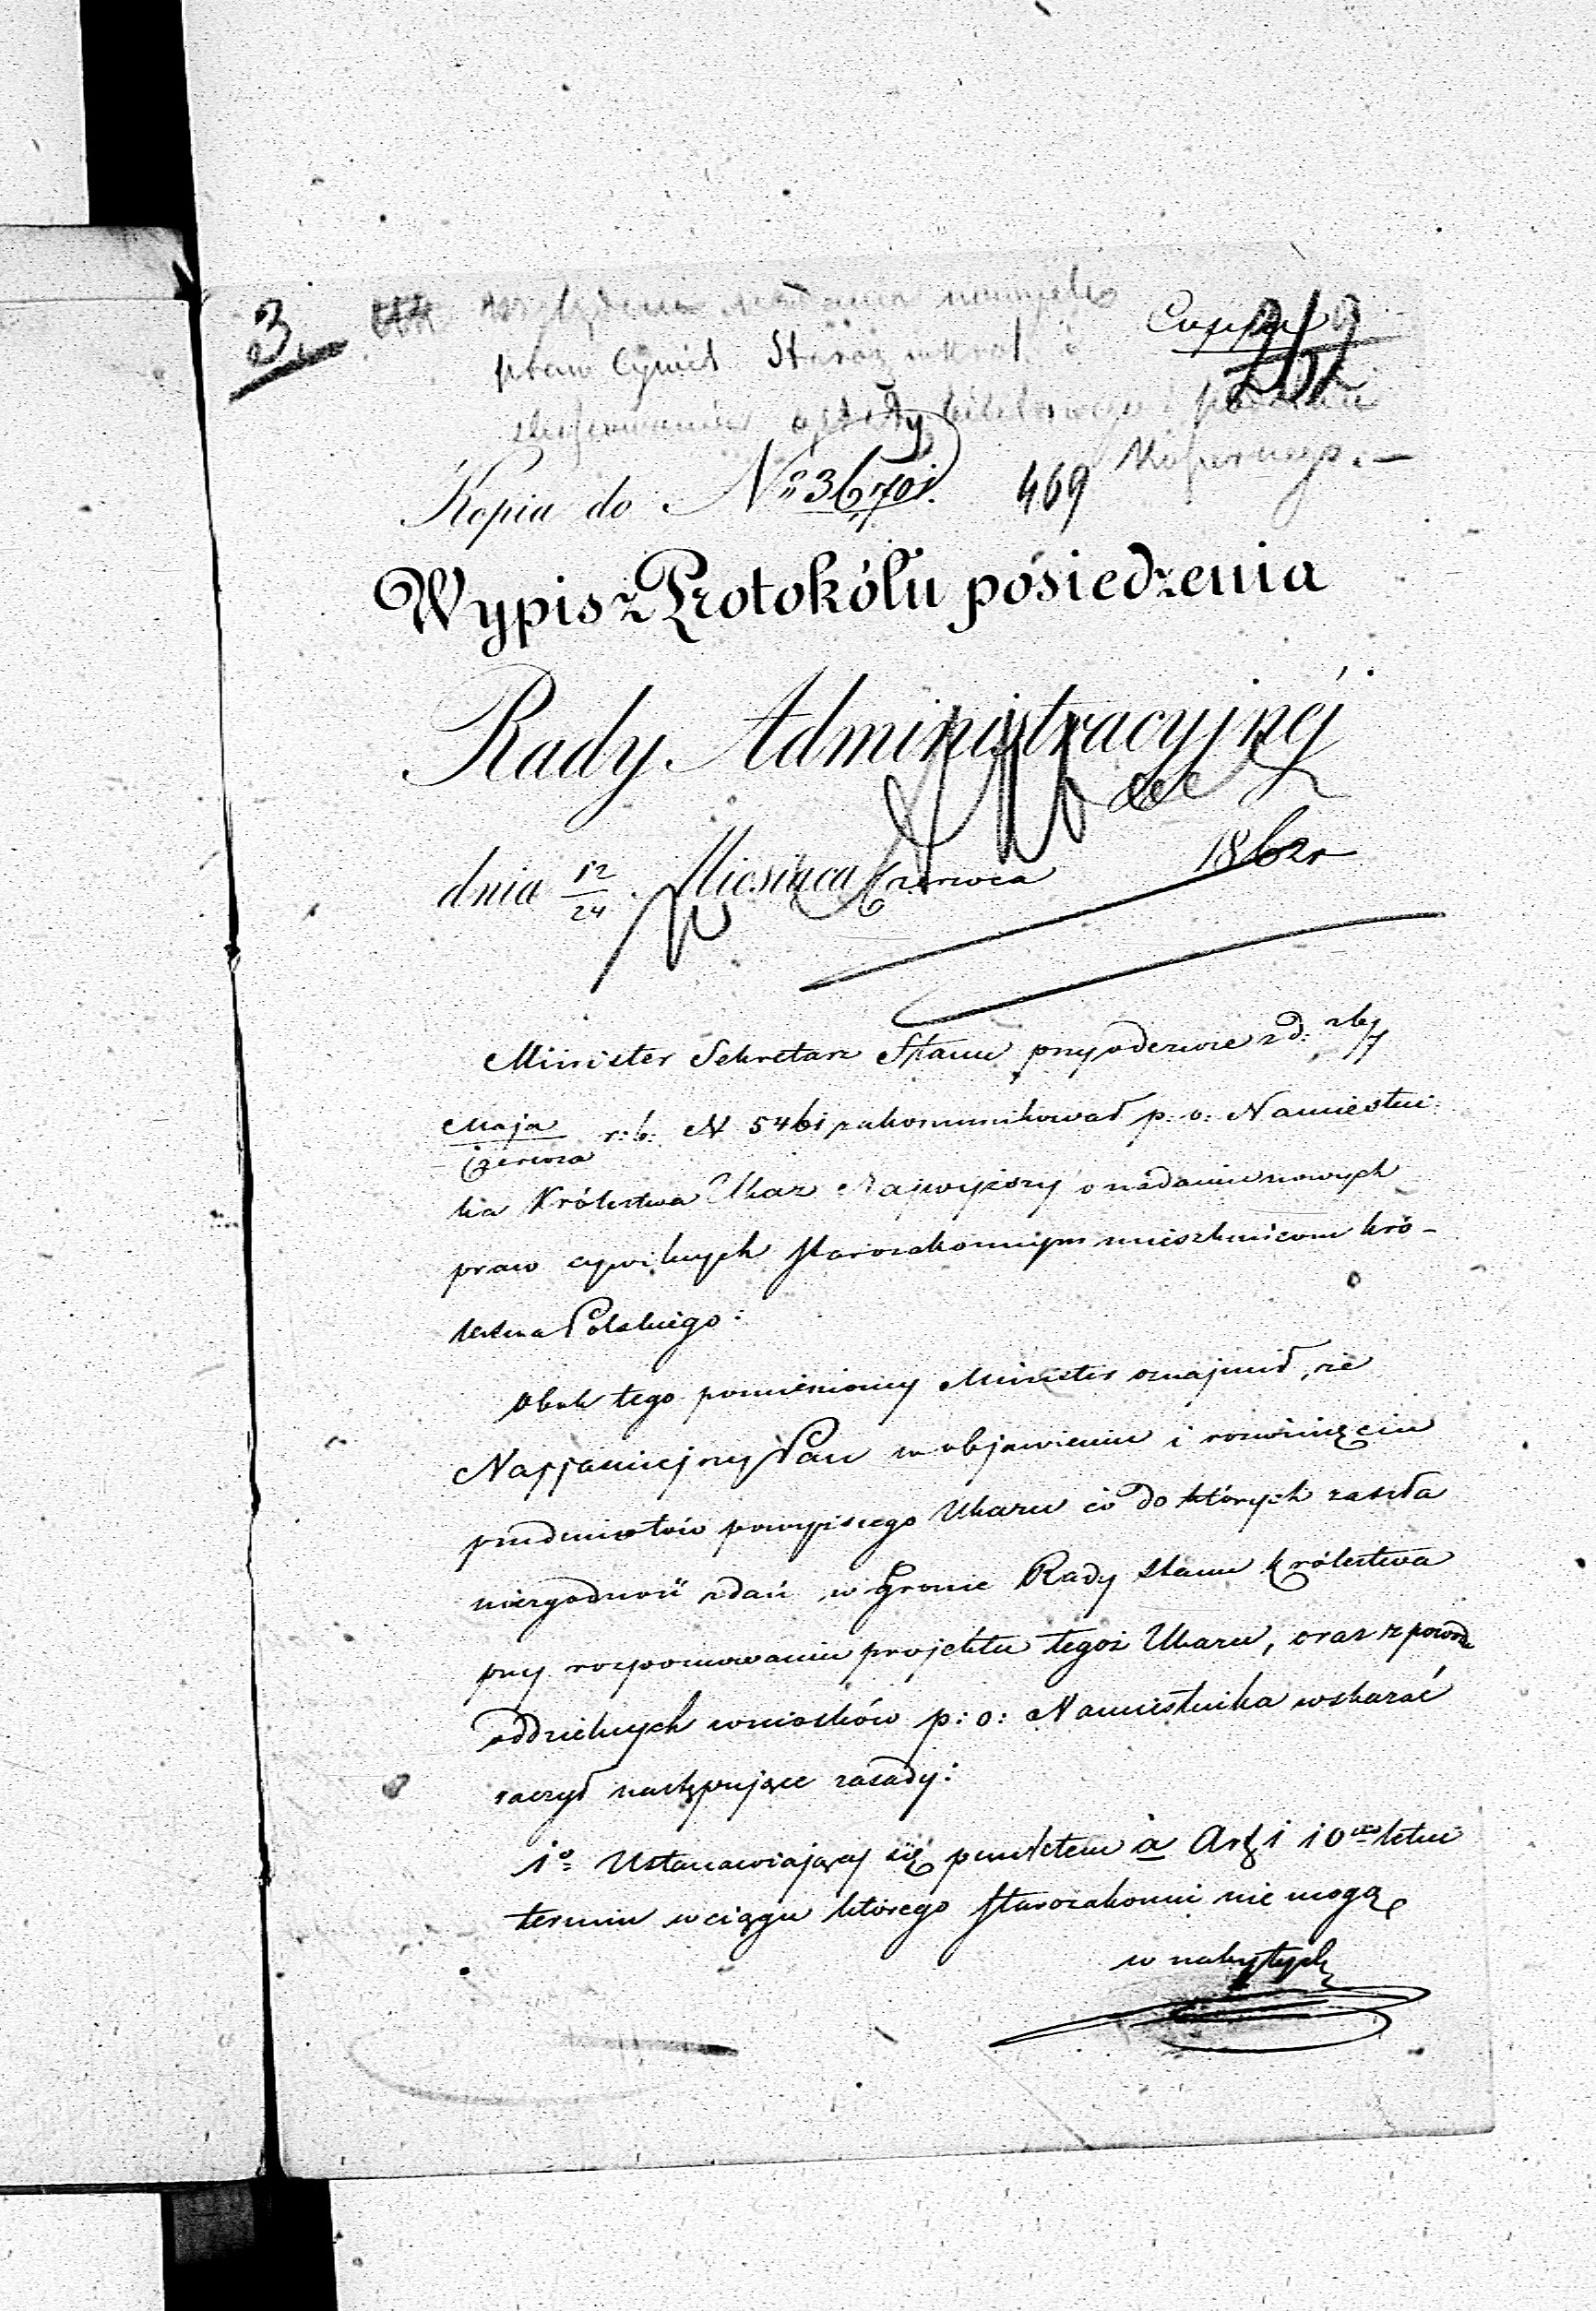 3.
praw Cywil Staroz w Król. i
Kopia do № 36701. 469
Wypis z Protokółu posiedzenia
Rady Administracyjnéj
dnia 12/24 Miesiąca Czerwca 1862 r
Minister Sekretarz Stanu przy odezwie z d: 26/7
Maja/Czerwca r: b: N 5461 zakomunikował p: o: Namiestni-
ka Królestwa Ukaz Najwyższy o nadaniu nowych
praw cywilnych starozakonnym mieszkańcom Kró-
lestwa Polskiego:
Obok tego pomieniony Minister oznajmił, że
Najjaśniejszy Pan w objawieniu i rozwinięciu
przedmiotów powyższego Ukazu co do których zaszła
niezgodność zdań w Gronie Rady Stanu Królestwa
przy rozpoznawaniu projektu tegoż Ukazu, oraz z powodu
oddzielnych wniosków p: o: Namiestnika wskazać
raczył następujące zasady:
1º Ustanawiający się punktem a Art 1 10cio letni
termin w ciągu którego starozakonni nie mogą
w nabytych